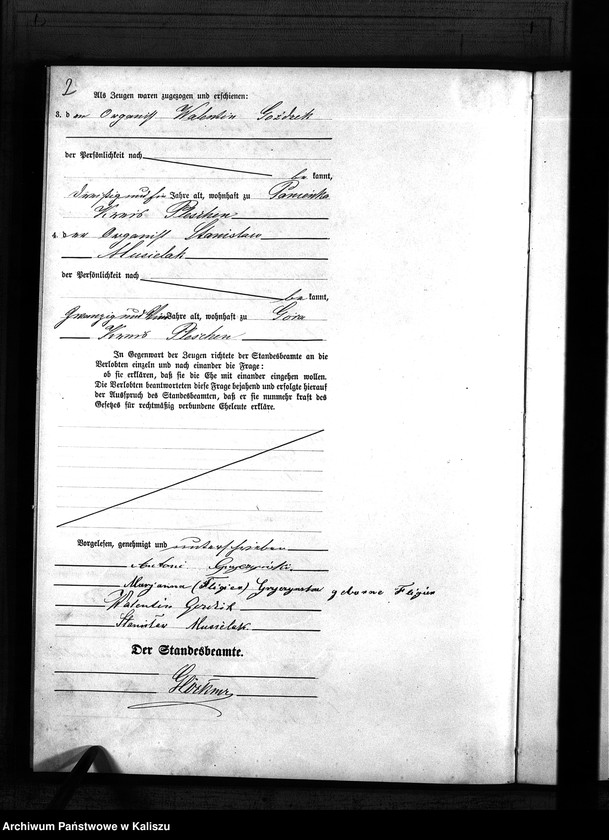 2
Als Zeugen waren zugezogen und erschienen:
3. der Organist Valentin Goździk
der Persönlichkeit nach
be kannt,
dreißig und Jahre alt, wohnhaft zu Panienka
Kreis Pleschen
4. der Organist Stanislaw
Musielak
der Persönlichkeit nach
be kannt,
zwanzig und Jahre alt, wohnhaft zu Góra
Kreis Pleschen
In Gegenwart der Zeugen richtete der Standesbeamte an die
Verlobten einzeln und nach einander die Frage:
ob sie erklären, daß sie die Ehe mit einander eingehen wollen.
Die Verlobten beantworteten diese Frage bejahend und erfolgte hierauf
der Ausspruch des Standesbeamten, daß er sie nunmehr kraft des
Gesetzes für rechtmäßig verbundene Eheleute erkläre.
Vorgelesen, genehmigt und unterschrieben
Antoni
Marjanna (Fligier) geborne Fligier
Walentin
Stanisław Musielak.
Der Standesbeamte.
Archiwum Państwowe w Kaliszu